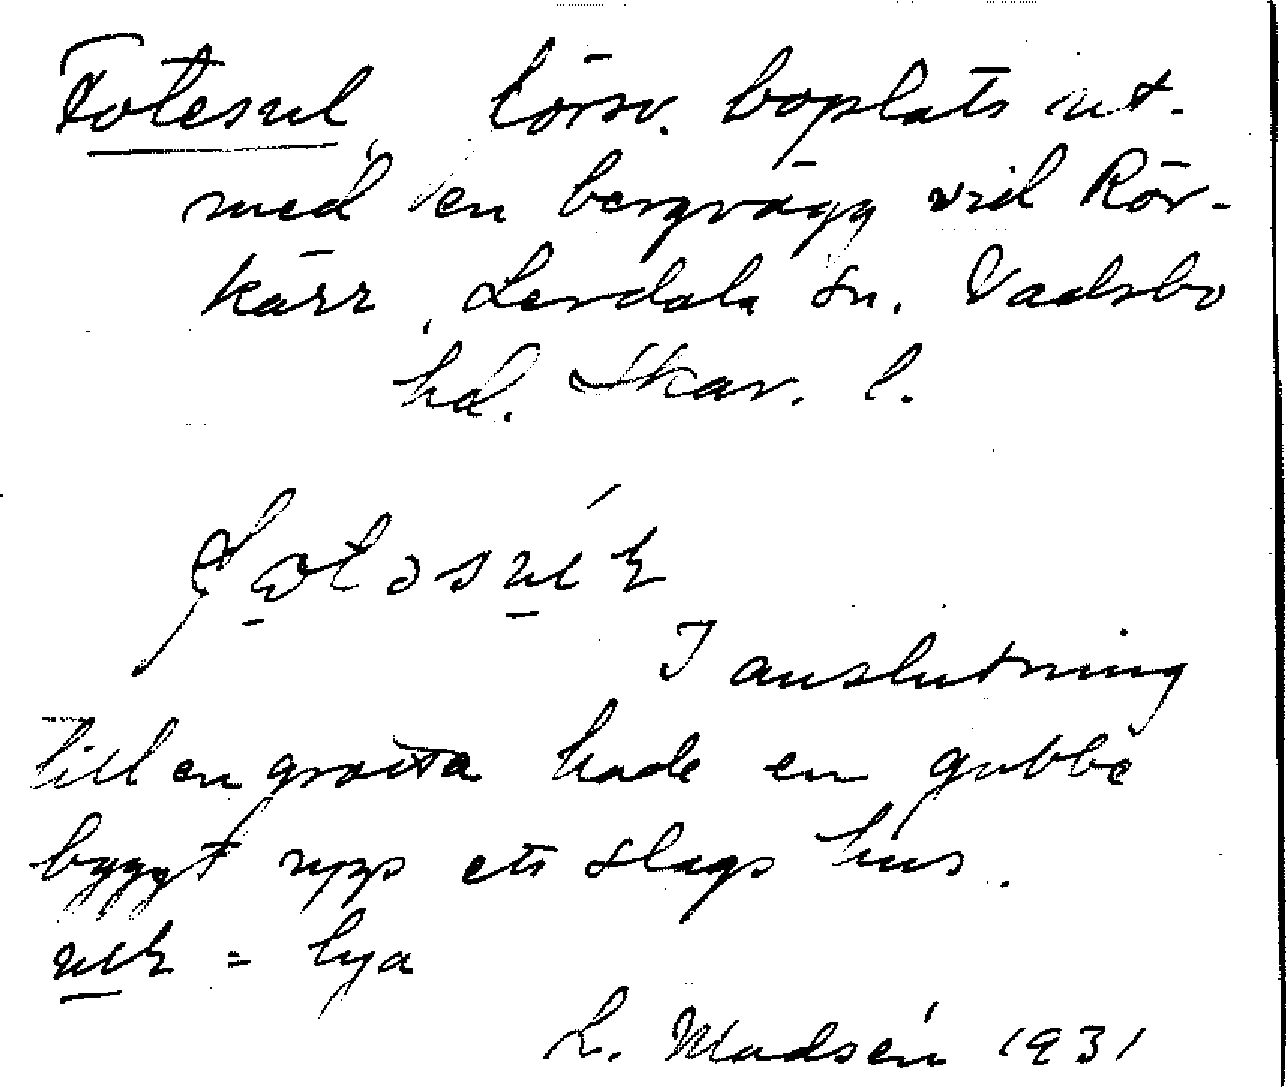 Totesul, försv. boplats ut-
med en bergvägg vid Rör-
kärr, Lerdala sn. Vadsbo
hd. Skar. l.
I anslutning
till en grotta hade en gubbe
byggt upp ett slags hus.
= lya
L. Modsén 1931